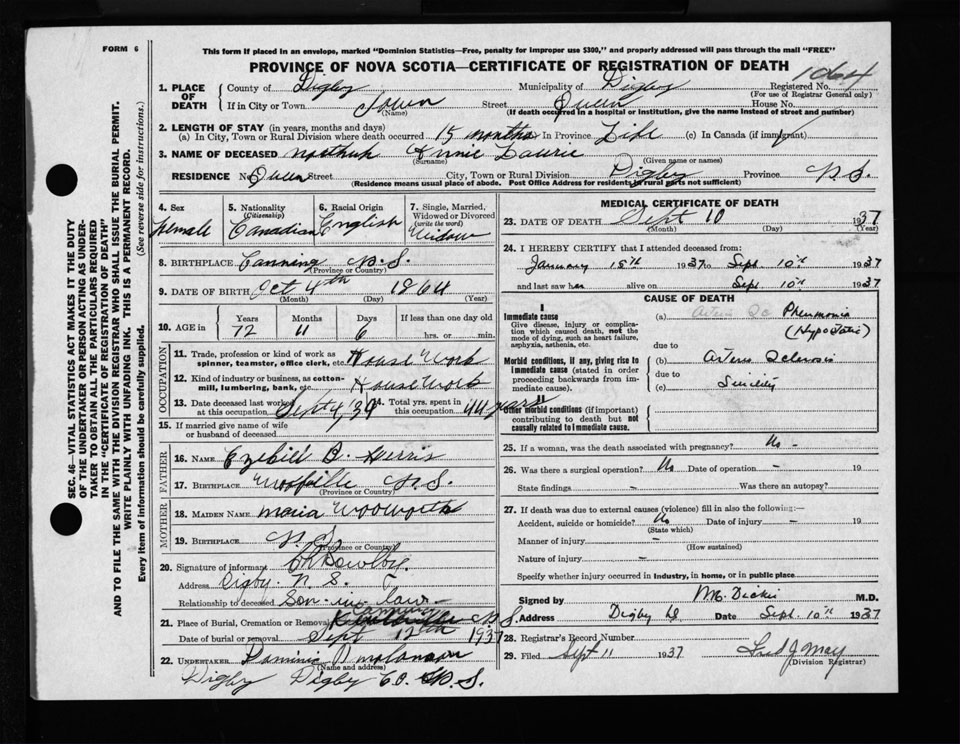 FORM 6
This form if placed in an envelope, marked "Dominion Statistics—Free, penalty for improper use $300," and properly addressed will pass through the mail "FREE"
PROVINCE OF NOVA SCOTIA—CERTIFICATE OF REGISTRATION OF DEATH
1. PLACE OF DEATH County of Digby Municipality of Digby Registered No. 1064
(For use of Registrar General only)
If in City or Town Town Street Queen House No.
(Name) (If death occurred in a hospital or institution, give the name instead of street and number)
2. LENGTH OF STAY (in years, months and days)
(a) In City, Town or Rural Division where death occurred 15 months In Province Life (c) In Canada (if immigrant)
3. NAME OF DECEASED Northup Annie Laurie
(Surname) (Given name or names)
RESIDENCE No. Queen Street City, Town or Rural Division Digby Province N.S.
(Residence means usual place of abode. Post Office Address for residents in rural parts not sufficient)
4. Sex Female
5. Nationality (Citizenship) Canadian
6. Racial Origin English
7. Single, Married, Widowed or Divorced (write the word) Widow
8. BIRTHPLACE Canning N.S.
(Province or Country)
9. DATE OF BIRTH Oct 4th 1864
(Month) (Day) (Year)
10. AGE in Years Months Days If less than one day old
72 11 6 hrs. or min.
OCCUPATION
11. Trade, profession or kind of work as spinner, teamster, office clerk, etc. House Work
12. Kind of industry or business, as cotton-mill, lumbering, bank, etc. House Work
13. Date deceased last worked at this occupation Sept 4/34
14. Total yrs. spent in this occupation 44 years
15. If married give name of wife or husband of deceased
FATHER
16. NAME B. Harris
17. BIRTHPLACE Wolfville N.S.
(Province or Country)
MOTHER
18. MAIDEN NAME Maria Woodworth
19. BIRTHPLACE N.S.
(Province or Country)
20. Signature of informant
Address Digby N.S.
Relationship to deceased Son-in-law
21. Place of Burial, Cremation or Removal Canning N.S.
Date of burial or removal Sept 12th 1937
22. UNDERTAKER Dominic
(Name and address)
Digby Digby Co. N.S.
MEDICAL CERTIFICATE OF DEATH
23. DATE OF DEATH Sept 10 1937
(Month) (Day) (Year)
24. I HEREBY CERTIFY that I attended deceased from:
January 15th 1937 to Sept. 10th 1937
and last saw her alive on Sept. 10th 1937
CAUSE OF DEATH
I
Immediate cause
Give disease, injury or complication which caused death, not the mode of dying, such as heart failure, asphyxia, asthenia, etc.
(a) Pneumonia (Hypostatic)
due to
Morbid conditions, if any, giving rise to immediate cause (stated in order proceeding backwards from immediate cause).
(b) Arterio Sclerosis
due to
(c) Senility
II
Other morbid conditions (if important) contributing to death but not causally related to immediate cause.
25. If a woman, was the death associated with pregnancy? No -
26. Was there a surgical operation? No Date of operation - 19
State findings - Was there an autopsy?
27. If death was due to external causes (violence) fill in also the following:—
Accident, suicide or homicide? No Date of injury - 19
(State which)
Manner of injury -
(How sustained)
Nature of injury -
Specify whether injury occurred in industry, in home, or in public place
Signed by M. Dickie M.D.
Address Digby Date Sept. 10th 1937
28. Registrar's Record Number
29. Filed Sept 11 1937 Fred J May
(Division Registrar)
SEC. 46—VITAL STATISTICS ACT MAKES IT THE DUTY
OF THE UNDERTAKER OR PERSON ACTING AS UNDER-
TAKER TO OBTAIN ALL THE PARTICULARS REQUIRED
IN THE "CERTIFICATE OF REGISTRATION OF DEATH"
AND TO FILE THE SAME WITH THE DIVISION REGISTRAR WHO SHALL ISSUE THE BURIAL PERMIT.
WRITE PLAINLY WITH UNFADING INK. THIS IS A PERMANENT RECORD.
Every item of information should be carefully supplied. (See reverse side for instructions.)